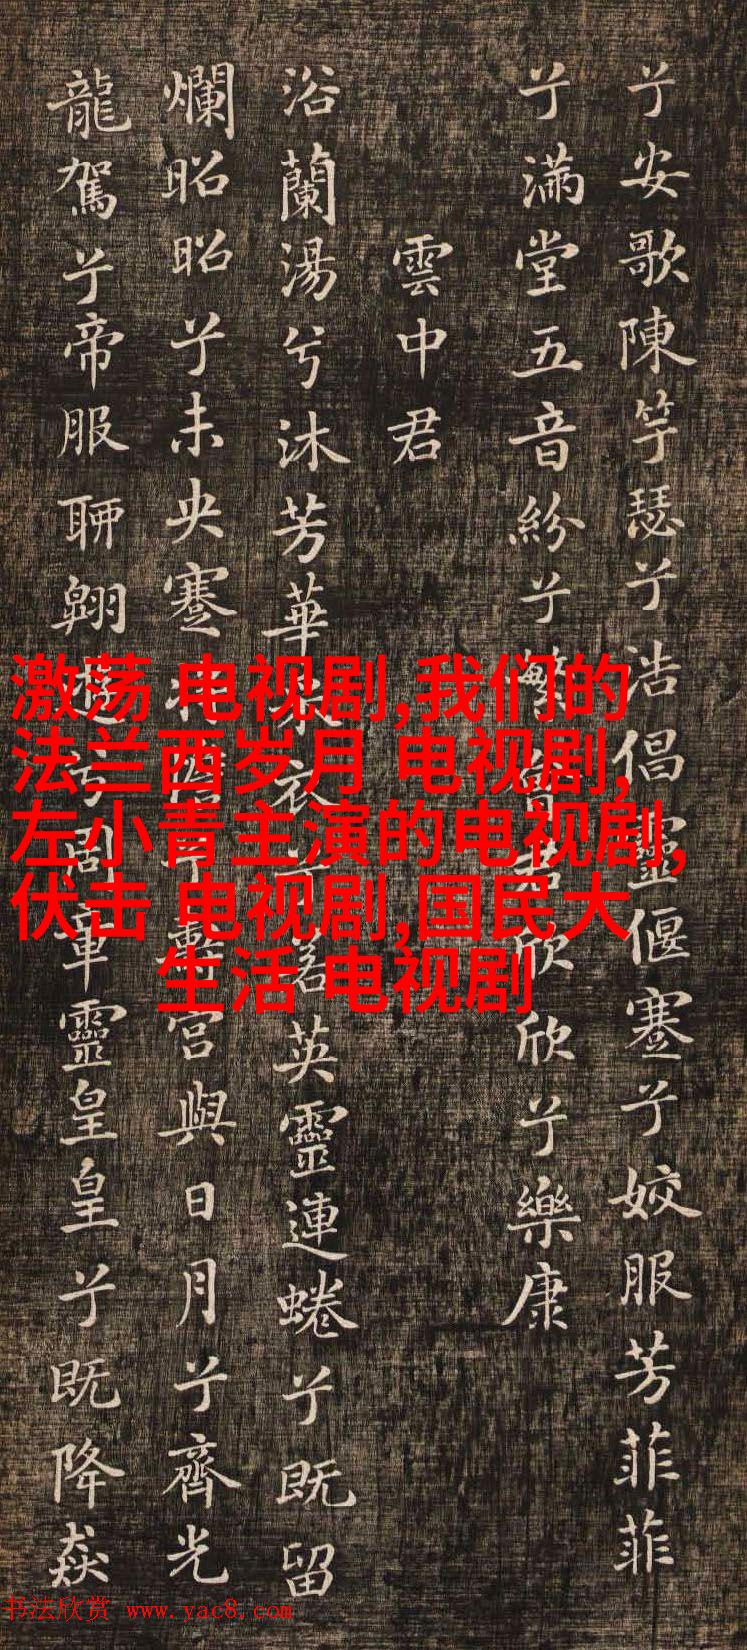 兮安歌陳竽瑟兮浩倡靈偃蹇兮姣服芳菲菲
兮滿堂五音紛兮繁會君欣欣兮樂康
雲中君
浴蘭湯兮沐芳華采衣兮若英靈連蜷兮既留
爛昭昭兮未央蹇將憺兮壽宮與日月兮齊光
龍駕兮帝服聊翱遊兮周章靈皇皇兮既降猋
激荡 电视剧,我们的
法兰西岁月 电视剧,
左小青主演的电视剧,
伏击 电视剧,国民大
生活 电视剧
书法欣赏 www.yac8.com